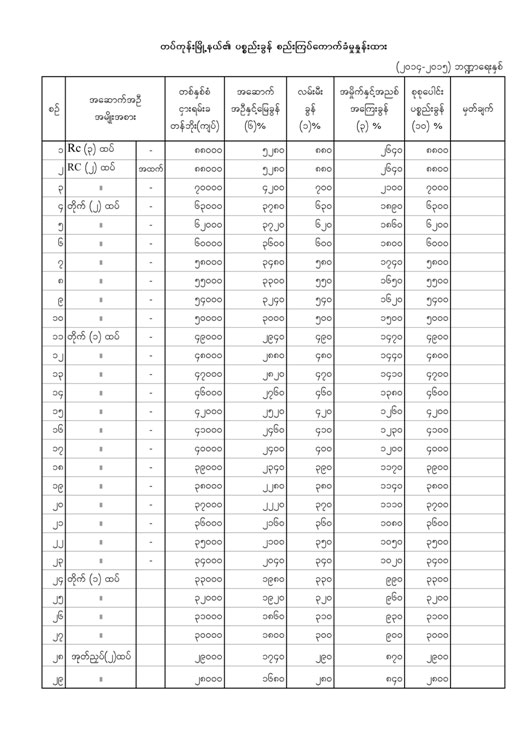 တပ်ကုန်းမြို့နယ်၏ ပစ္စည်းခွန် စည်းကြပ်ကောက်ခံမှုနှုန်းထား
(၂၀၁၄-၂၀၁၅) ဘဏ္ဍာရေးနှစ်
စဉ် အဆောက်အဦ အမျိုးအစား တစ်နှစ်စံ ငှားရမ်းခ တန်ဘိုး(ကျပ်) အဆောက် အဦနှင့်မြေခွန် (၆)% လမ်းမီး ခွန် (၁)% အမှိုက်နှင့်အညစ် အကြေးခွန် (၃) % စုစုပေါင်း ပစ္စည်းခွန် (၁၀) % မှတ်ချက်
၁ Rc (၃) ထပ် - ၈၈၀၀၀ ၅၂၈၀ ၈၈၀ ၂၆၄၀ ၈၈၀၀
၂ RC (၂) ထပ် အထက် ၈၈၀၀၀ ၅၂၈၀ ၈၈၀ ၂၆၄၀ ၈၈၀၀
၃ " - ၇၀၀၀၀ ၄၂၀၀ ၇၀၀ ၂၁၀၀ ၇၀၀၀
၄ တိုက် (၂) ထပ် - ၆၃၀၀၀ ၃၇၈၀ ၆၃၀ ၁၈၉၀ ၆၃၀၀
၅ " - ၆၂၀၀၀ ၃၇၂၀ ၆၂၀ ၁၈၆၀ ၆၂၀၀
၆ " - ၆၀၀၀၀ ၃၆၀၀ ၆၀၀ ၁၈၀၀ ၆၀၀၀
၇ " - ၅၈၀၀၀ ၃၄၈၀ ၅၈၀ ၁၇၄၀ ၅၈၀၀
၈ " - ၅၅၀၀၀ ၃၃၀၀ ၅၅၀ ၁၆၅၀ ၅၅၀၀
၉ " - ၅၄၀၀၀ ၃၂၄၀ ၅၄၀ ၁၆၂၀ ၅၄၀၀
၁၀ " - ၅၀၀၀၀ ၃၀၀၀ ၅၀၀ ၁၅၀၀ ၅၀၀၀
၁၁ တိုက် (၁) ထပ် - ၄၉၀၀၀ ၂၉၄၀ ၄၉၀ ၁၄၇၀ ၄၉၀၀
၁၂ " - ၄၈၀၀၀ ၂၈၈၀ ၄၈၀ ၁၄၄၀ ၄၈၀၀
၁၃ " - ၄၇၀၀၀ ၂၈၂၀ ၄၇၀ ၁၄၁၀ ၄၇၀၀
၁၄ " - ၄၆၀၀၀ ၂၇၆၀ ၄၆၀ ၁၃၈၀ ၄၆၀၀
၁၅ " - ၄၂၀၀၀ ၂၅၂၀ ၄၂၀ ၁၂၆၀ ၄၂၀၀
၁၆ " - ၄၁၀၀၀ ၂၄၆၀ ၄၁၀ ၁၂၃၀ ၄၁၀၀
၁၇ " - ၄၀၀၀၀ ၂၄၀၀ ၄၀၀ ၁၂၀၀ ၄၀၀၀
၁၈ " - ၃၉၀၀၀ ၂၃၄၀ ၃၉၀ ၁၁၇၀ ၃၉၀၀
၁၉ " - ၃၈၀၀၀ ၂၂၈၀ ၃၈၀ ၁၁၄၀ ၃၈၀၀
၂၀ " - ၃၇၀၀၀ ၂၂၂၀ ၃၇၀ ၁၁၁၀ ၃၇၀၀
၂၁ " - ၃၆၀၀၀ ၂၁၆၀ ၃၆၀ ၁၀၈၀ ၃၆၀၀
၂၂ " - ၃၅၀၀၀ ၂၁၀၀ ၃၅၀ ၁၀၅၀ ၃၅၀၀
၂၃ " - ၃၄၀၀၀ ၂၀၄၀ ၃၄၀ ၁၀၂၀ ၃၄၀၀
၂၄ တိုက် (၁) ထပ် ၃၃၀၀၀ ၁၉၈၀ ၃၃၀ ၉၉၀ ၃၃၀၀
၂၅ " ၃၂၀၀၀ ၁၉၂၀ ၃၂၀ ၉၆၀ ၃၂၀၀
၂၆ " ၃၁၀၀၀ ၁၈၆၀ ၃၁၀ ၉၃၀ ၃၁၀၀
၂၇ " ၃၀၀၀၀ ၁၈၀၀ ၃၀၀ ၉၀၀ ၃၀၀၀
၂၈ အုတ်ညှပ်(၂)ထပ် ၂၉၀၀၀ ၁၇၄၀ ၂၉၀ ၈၇၀ ၂၉၀၀
၂၉ " ၂၈၀၀၀ ၁၆၈၀ ၂၈၀ ၈၄၀ ၂၈၀၀